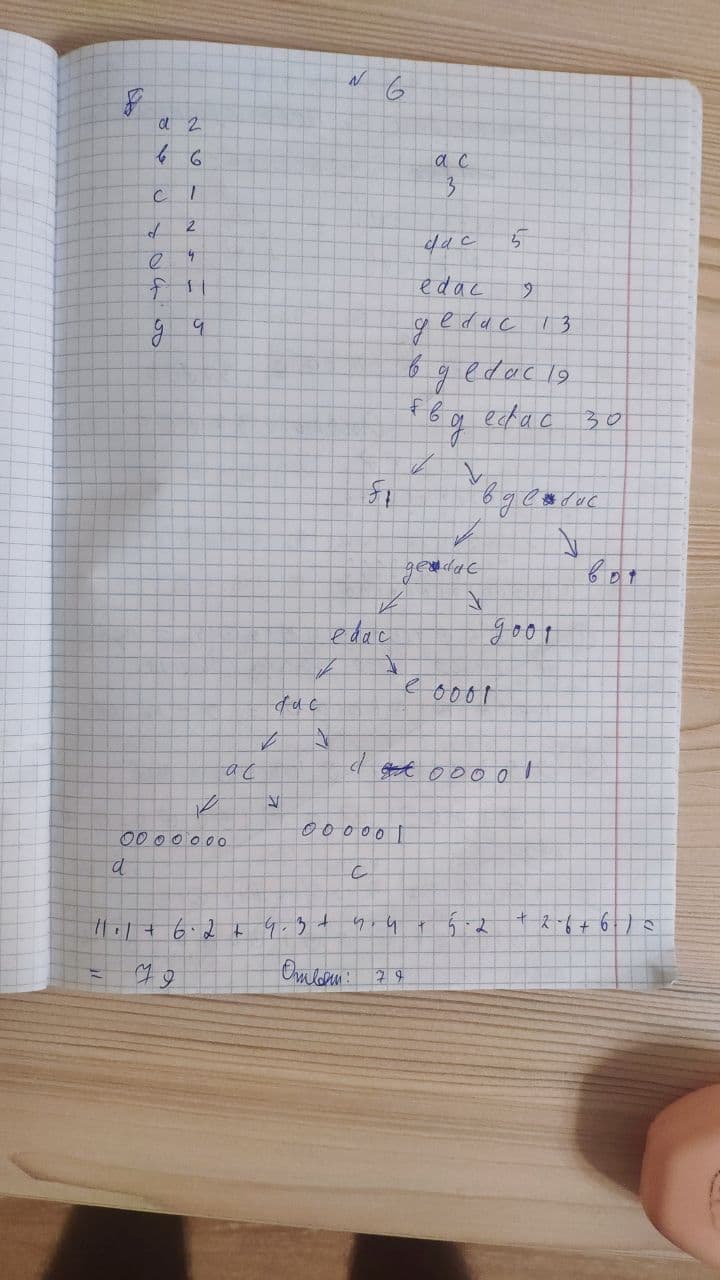 № 6
a 2
b 6
c 1
d 2
e 4
f 11
g 4
ac
3
dac 5
edac 9
gedac 13
bgedac 19
fbgedac 30
f 1 bgedac
gedac b 01
edac g 001
dac e 0001
ac d 00001
0000000 000001
a c
11·1 + 6·2 + 4·3 + 4·4 + 5·2 + 2·6 + 6·1 =
= 79 Ответ: 79